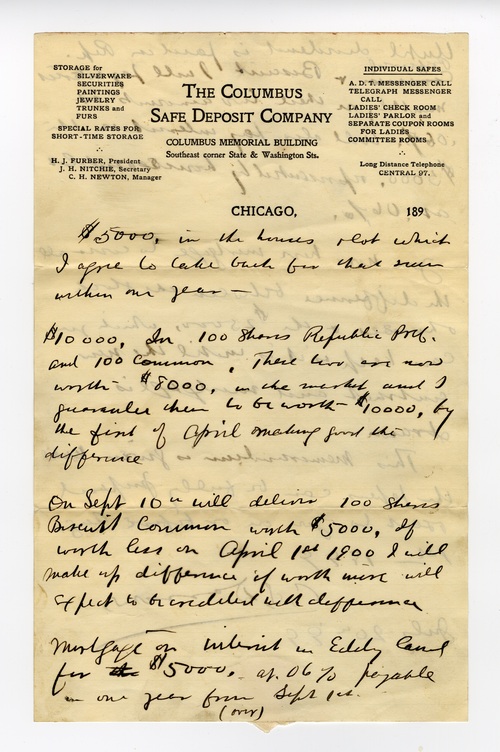 STORAGE for
SILVERWARE
SECURITIES
PAINTINGS
JEWELRY
TRUNKS and
FURS
SPECIAL RATES FOR
SHORT-TIME STORAGE
H. J. FURBER, President
J. H. NITCHIE, Secretary
C. H. NEWTON, Manager
THE COLUMBUS
SAFE DEPOSIT COMPANY
COLUMBUS MEMORIAL BUILDING
Southeast corner State & Washington Sts.
INDIVIDUAL SAFES
A. D. T. MESSENGER CALL
TELEGRAPH MESSENGER
CALL
LADIES' CHECK ROOM
LADIES' PARLOR and
SEPARATE COUPON ROOMS
FOR LADIES
COMMITTEE ROOMS
Long Distance Telephone
CENTRAL 97.
CHICAGO, 189
$5000, in the houses & lot which
I agree to take back for that sum
within one year —
$10000, In 100 Shares Republic Pref.
and 100 Common, These two are now
worth $8000, in the market and I
guarantee them to be worth $10000, by
the first of April making good the
difference
On Sept 10th will deliver 100 Shares
Biscuit Common worth $5000, If
worth less on April 1st 1900 I will
make up difference if worth more will
expect to be credited with difference
Mortgage on interest in Eddy Land
for $5000, at 06% payable
in one year from Sept 1st.
(over)